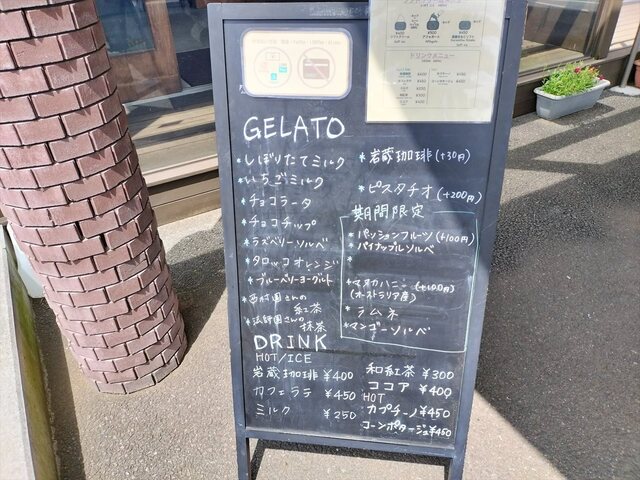 GELATO
*しぼりたてミルク
*いちごミルク
*チョコラータ
*チョコチップ
*ラズベリーソルベ
*タロッコオレンジ
*ブルーベリーヨーグルト
*西村園さんの
紅茶
*法師園さんの
抹茶
*岩蔵珈琲(+30円)
*ピスタチオ(+200円)
期間限定
*パッションフルーツ(+100円)
*パイナップルソルベ
*
*マヌカハニー(+100円)
(オーストラリア産)
*ラムネ
*マンゴーソルベ
DRINK
HOT/ICE
岩蔵珈琲 ¥400
カフェラテ ¥450
ミルク ¥250
和紅茶 ¥300
ココア ¥400
HOT
カプチーノ ¥450
コーンポタージュ ¥450
ドリンクメニュー